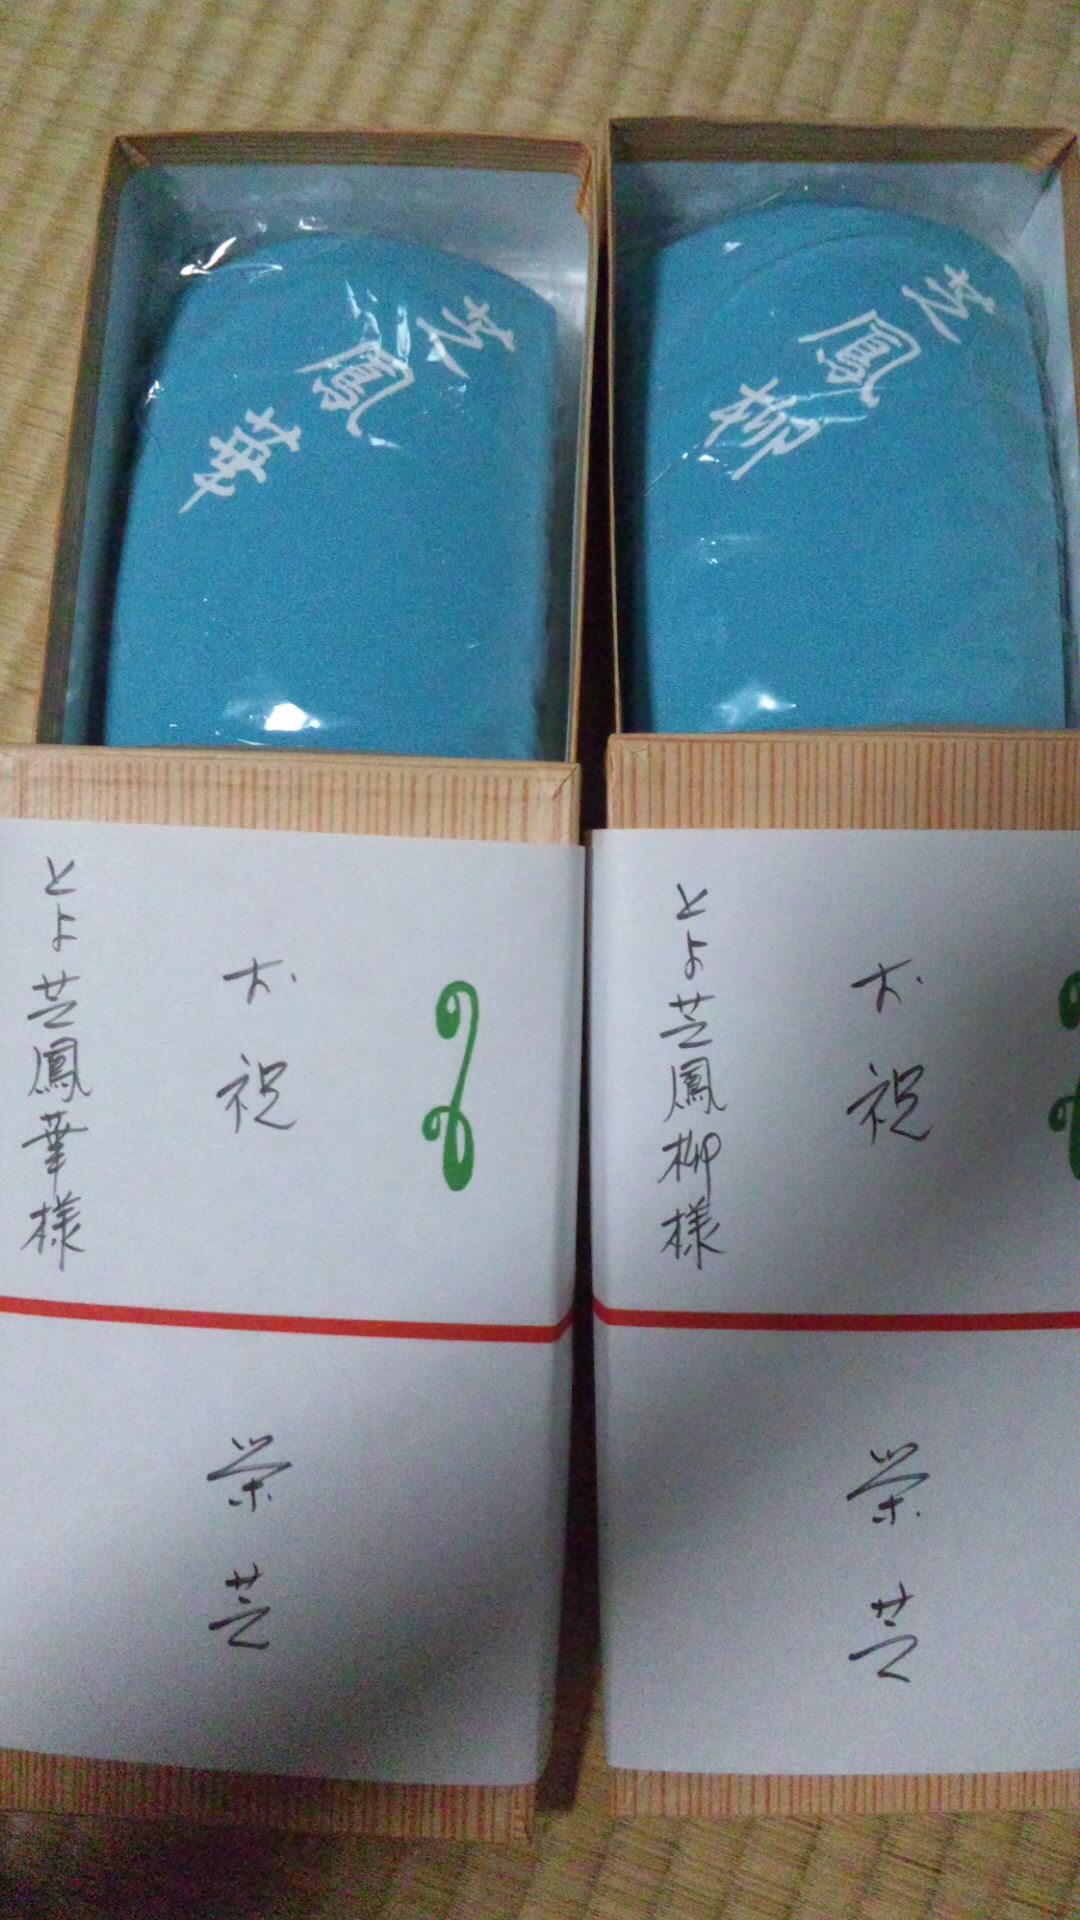 芝鳳華
芝鳳柳
お祝
とよ芝鳳華様
栄芝
お祝
とよ芝鳳柳様
栄芝